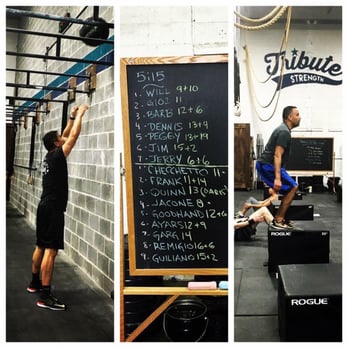 5:15
1. WILL 9+10
2. GIOZ 11
3. BARB 12+6
4. DENNIS 13+9
5. PEGGY 13+19
6. JIM 15+2
7. JERRY 6+6
1. CHECCHETTO 11
2. FRANK 11+14
3. QUINN 13
4. JACONE 8
5. GOODHAND 12+6
6. AYARS 12+9
7. GARG 14
8. REMIGIO 16+6
9. GUILIANO 15+2
Tribute
STRENGTH
ROGUE
ROGUE